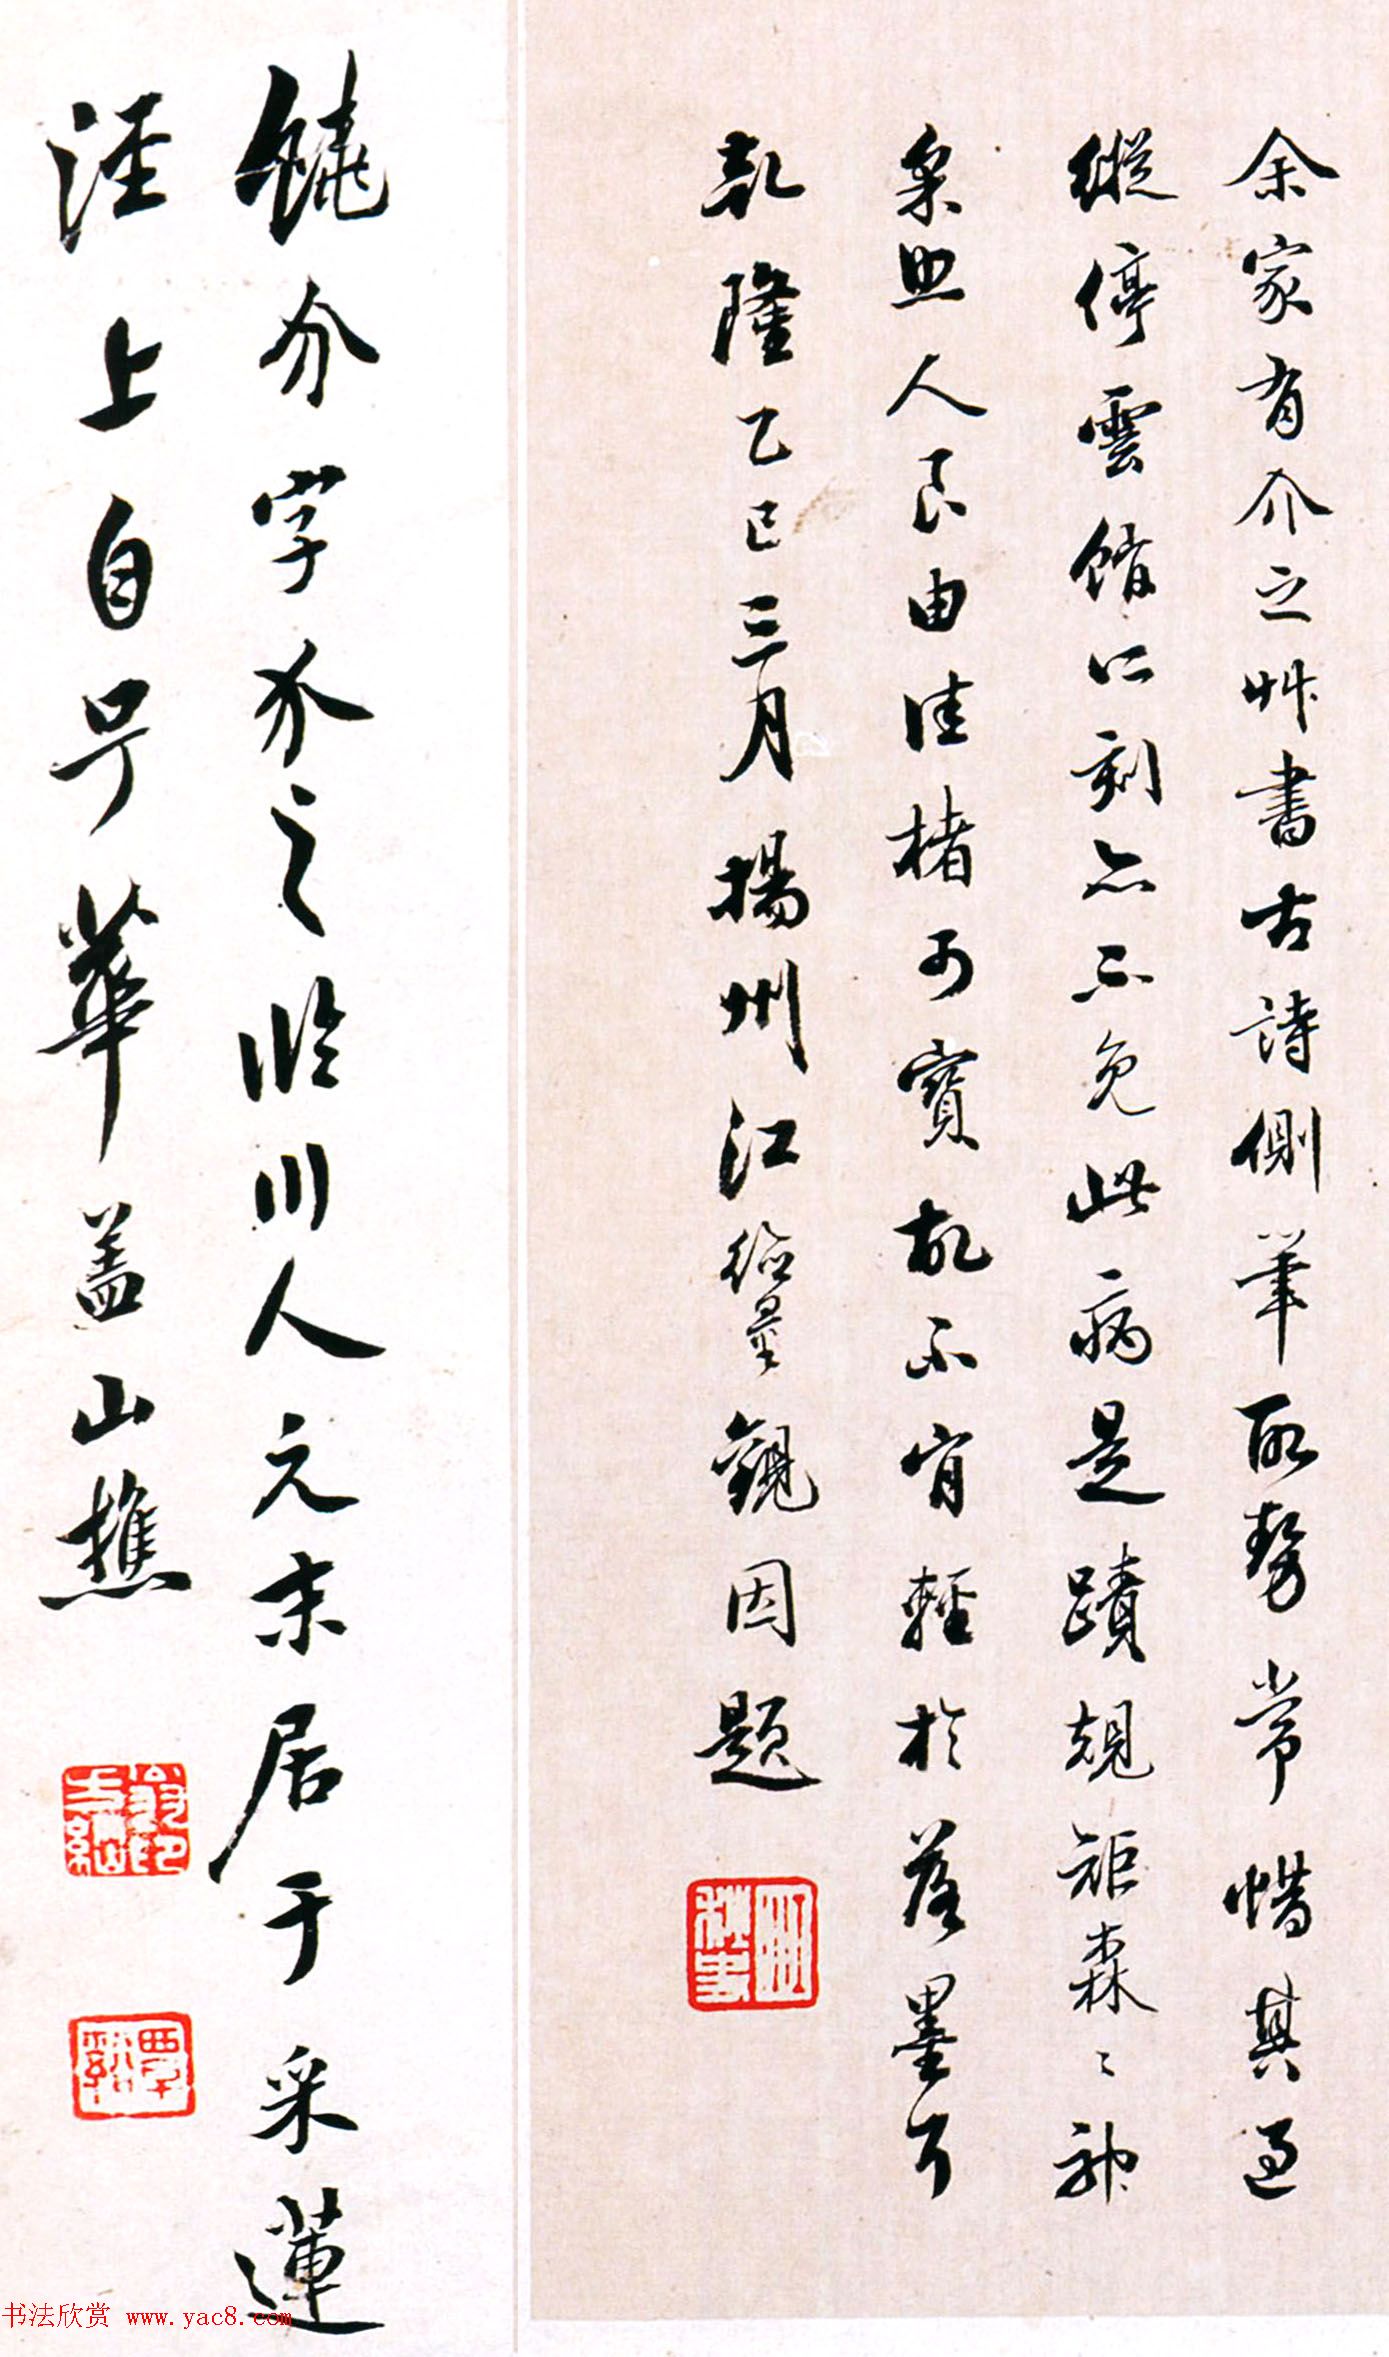 余家有介之艸書古詩側筆取勢常惜其過
縱停雲館所刻亦不免此病是蹟規矩森〻神
采照人良由佳楮可寶故不肯輕於落墨耳
乾隆乙巳三月揚州江德量觀因題
江秋史
饒介字介之臨川人元末居于采蓮
涇上自号華蓋山樵
翁方綱印
覃谿
书法欣赏 www.yac8.com